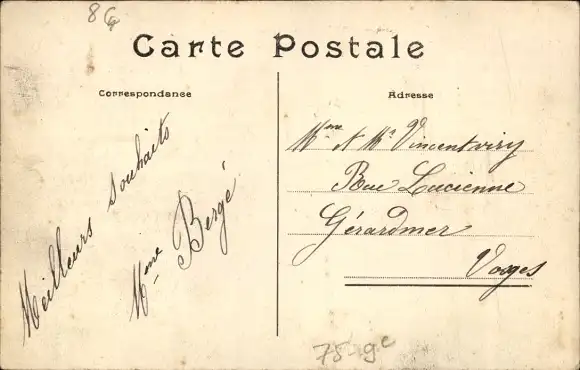 86
Carte Postale
Correspondance
Adresse
Meilleurs souhaits
Mme Bergé
Mme & Mr Vincentviry
Rue Lucienne
Gérardmer
Vosges
75-9c